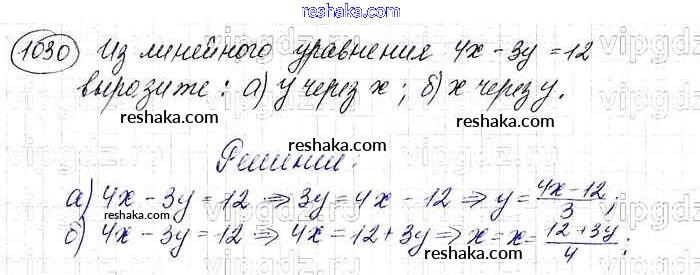 reshaka.com
1030 Из линейного уравнения 4x - 3y = 12
vipgdz.ru
выразите: а) y через x; б) x через y.
reshaka.com reshaka.com
Решение:
reshaka.com
а) 4x - 3y = 12 ⇒ 3y = 4x - 12 ⇒ y = (4x-12)/3;
б) 4x - 3y = 12 ⇒ 4x = 12 + 3y ⇒ x = x = (12+3y)/4;
reshaka.com
reshaka.com